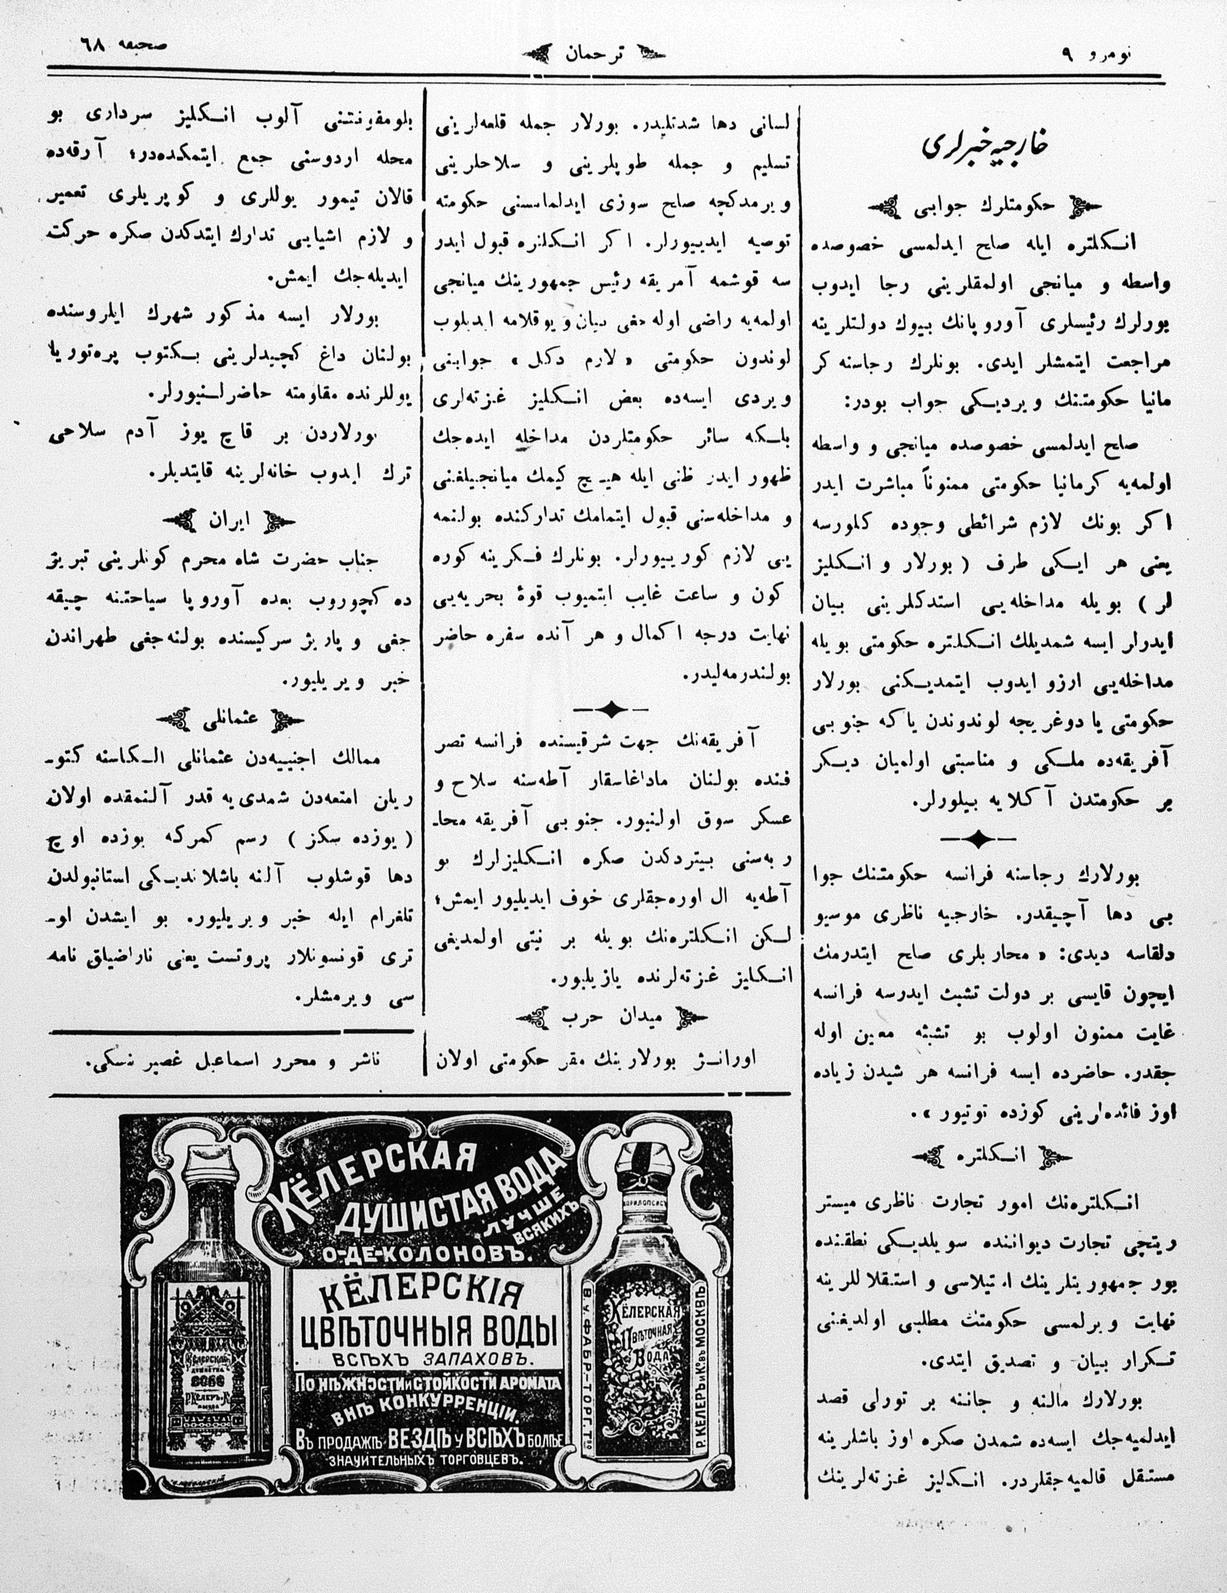 نومرو ٩
ترجمان
صحیفه ٦٨
خارجیه خبرلری
حکومتلرك جوابی
انـکلتره ایله صلح ایدلمسی خصوصده
واسطه و میانجی اولمقلرینی رجا ایدوب
بورلرك رئیسلری آوروپانك بیوك دولتلرینه
مراجعت ایتمشلر ایدی. بونلرك رجاسنه کر
مانیا حکومتنك ویردیـکی جواب بودر:
صلح ایدلمسی خصوصده میانجی و واسطه
اولمه‌یه کرمانیا حکومتی ممنوناً مباشرت ایدر
اکر بونك لازم شرائطی وجوده کلورسه
یعنی هر ایـکی طرف ( بورلار و انـکلیز
لر ) بویله مداخله‌یی استدکلرینی بیان
ایدرلر ایسه شمدیلك انـکلتره حکومتی بویله
مداخله‌یی ارزو ایدوب ایتمدیـکنی بورلار
حکومتی یا دوغریجه لوندوندن یا که جنوبی
آفریقه‌ده ملـکی و مناسبتی اولمیان دیـکر
بر حکومتدن آکلایه بیلورلر.
بورلارك رجاسنه فرانسه حکومتنك جوا
بی دها آچیقدر. خارجیه ناظری موسیو
دلقاسه دیدی: « محاربلری صلح ایتدرمك
ایچون قایسی بر دولت تشبث ایدرسه فرانسه
غایت ممنون اولوب بو تشبثه معین اوله
جقدر. حاضرده ایسه فرانسه هر شیدن زیاده
اوز فائده‌لرینی کوزده توتیور ».
انـکلتره
انـکلتره‌نك امور تجارت ناظری میستر
ریتچی تجارت دیواننده سویلدیـکی نطقنده
بور جمهوریتلرینك استیلاسی و استقلاللرینه
نهایت ویرلمسی حکومتك مطلبی اولدیغنی
تـکرار بیان و تصدیق ایتدی.
بورلارك مالنه و جاننه بر تورلی قصد
ایدلمیه‌جك ایسه‌ده شمدن صکره اوز باشلرینه
مستقل قالمیه‌جقلردر. انـکلیز غزته‌لرینك
لسانی دها شدتلیدر. بورلار جمله قلعه‌لرینی
تسلیم و جمله طوپلرینی و سلاحلرینی
ویرمدکچه صلح سوزی ایدلمامسنی حکومته
توصیه ایدییورلر. اکر انـکلتره قبول ایدر
سه قوشمه آمریقه رئیس جمهورینك میانجی
اولمه‌یه راضی اوله‌جغی بیان و یوقلامه ایدیلوب
لوندون حکومتی « لازم دکل » جوابنی
ویردی ایسه‌ده بعض انـکلیز غزته‌لری
بلـکه سائر حکومتلردن مداخله ایده‌جك
ظهور ایدر ظنی ایله هیـچ کیمك میانجیلغنی
و مداخله‌سنی قبول ایتمامك تدارکنده بولنمه
یی لازم کورییورلر. بونلرك فـکرینه کوره
کون و ساعت غایب ایتمیوب قوهٔ بحریه‌یی
نهایت درجه اکمال و هر آنده سفره حاضر
بولندرمه‌لیدر.
آفریقه‌نك جهت شرقیسنده فرانسه تصر
فنده بولنان ماداغاسقار آطه‌سنه سلاح و
عسکر سوق اولنیور. جنوبی آفریقه محا-
ربه‌سنی بیتردکدن صکره انـکلیزلرك بو
آطه‌یه ال اوره‌جقلری خوف ایدیلیور ایمش؛
لـکن انـکلتره‌نك بویله بر نیتی اولمدیغی
انـکلیز غزته‌لرنده یازیلیور.
میدان حرب
اورانـژ بورلارینك مقر حکومتی اولان
بلومفونتتنی آلوب انـکلیز سرداری بو
محله اردوسنی جمع ایتمکده‌در؛ آرقه‌ده
قالان تیمور یوللری و کوپریلری تعمیر
و لازم اشیایی تدارك ایتدکدن صکره حرکت
ایدیله‌جك ایمش.
بورلار ایسه مذکور شهرك ایلروسنده
بولنان داغ کچیدلرینی بـکتوب پره‌توریا
یوللرنده مقاومته حاضرلـنیورلر.
بورلاردن بر قاچ یوز آدم سلاحی
ترك ایدوب خانه‌لرینه قایتدیلر.
ایران
جناب حضرت شاه محرم کونلرینی تبریز
ده کچوروب بعده آوروپا سیاحتنه چیقه
جغی و پاریژ سرکیسنده بولنه‌جغی طهراندن
خبر ویریلیور.
عثمانلی
ممالك اجنبیه‌دن عثمانلی الـکاسنه کتو-
ریلن امتعه‌دن شمدی‌یه قدر آلنمقده اولان
( یوزده سکز ) رسم کمرکه یوزده اوچ
دها قوشلوب آلنه باشلاندیـکی استانبولدن
تلغرام ایله خبر ویریلیور. بو ایشدن او-
تری قونسونلار پروتست یعنی ناراضیلق نامه
سی ویرمشلر.
ناشر و محرر اسماعیل غصپرنسکی.
КЁЛЕРСКАЯ
ДУШИСТАЯ ВОДА
ЛУЧШЕ
ВСЯКИХЪ
О-ДЕ-КОЛОНОВЪ.
КЁЛЕРСКІЯ
ЦВѢТОЧНЫЯ ВОДЫ
ВСѢХЪ ЗАПАХОВЪ.
ПО НѢЖНОСТИ и СТОЙКОСТИ АРОМАТА
ВНѢ КОНКУРРЕНЦІИ.
ВЪ ПРОДАЖѢ ВЕЗДѢ У ВСѢХЪ БОЛѢЕ
ЗНАЧИТЕЛЬНЫХЪ ТОРГОВЦЕВЪ.
КЁЛЕРСКАЯ
ЦВѢТОЧНАЯ
ВОДА
Р. КЕЛЕРЪ и Ко въ МОСКВѢ